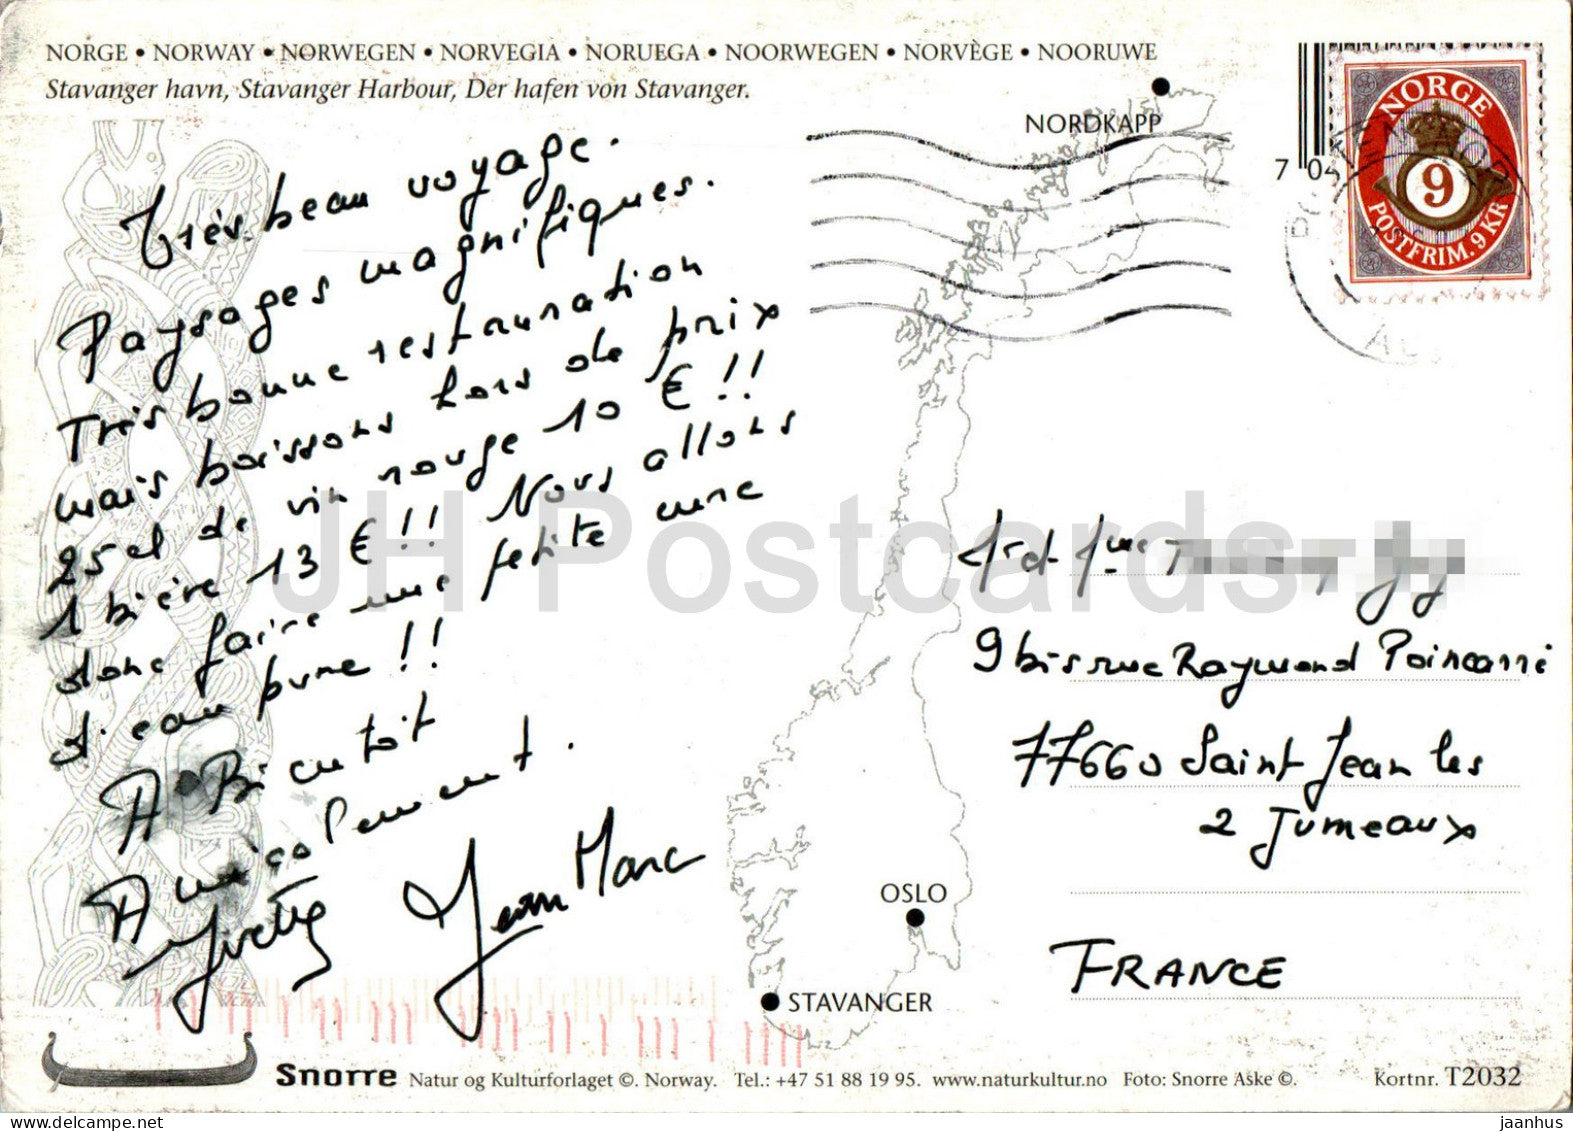 NORGE • NORWAY • NORWEGEN • NORVEGIA • NORUEGA • NOORWEGEN • NORVÈGE • NOORUWE
Stavanger havn, Stavanger Harbour, Der hafen von Stavanger.
Très beau voyage.
Paysages magnifiques.
Très bonne restauration
mais boissons hors de prix
25 cl de vin rouge 10 € !!
1 bière 13 € !! Nous allons
donc faire une petite cure
d'eau pure !!
A Bientôt
Amicalement.
Yvette Jean Marc
NORDKAPP
OSLO
STAVANGER
7 04
NORGE
9
POSTFRIM. 9 KR
Mr et Mme T
9 bis rue Raymond Poincarré
77660 Saint Jean les
2 Jumeaux
FRANCE
JH Postcards
Snorre Natur og Kulturforlaget ©. Norway. Tel.: +47 51 88 19 95. www.naturkultur.no Foto: Snorre Aske ©. Kortnr. T2032
jaanhus
delcampe.net